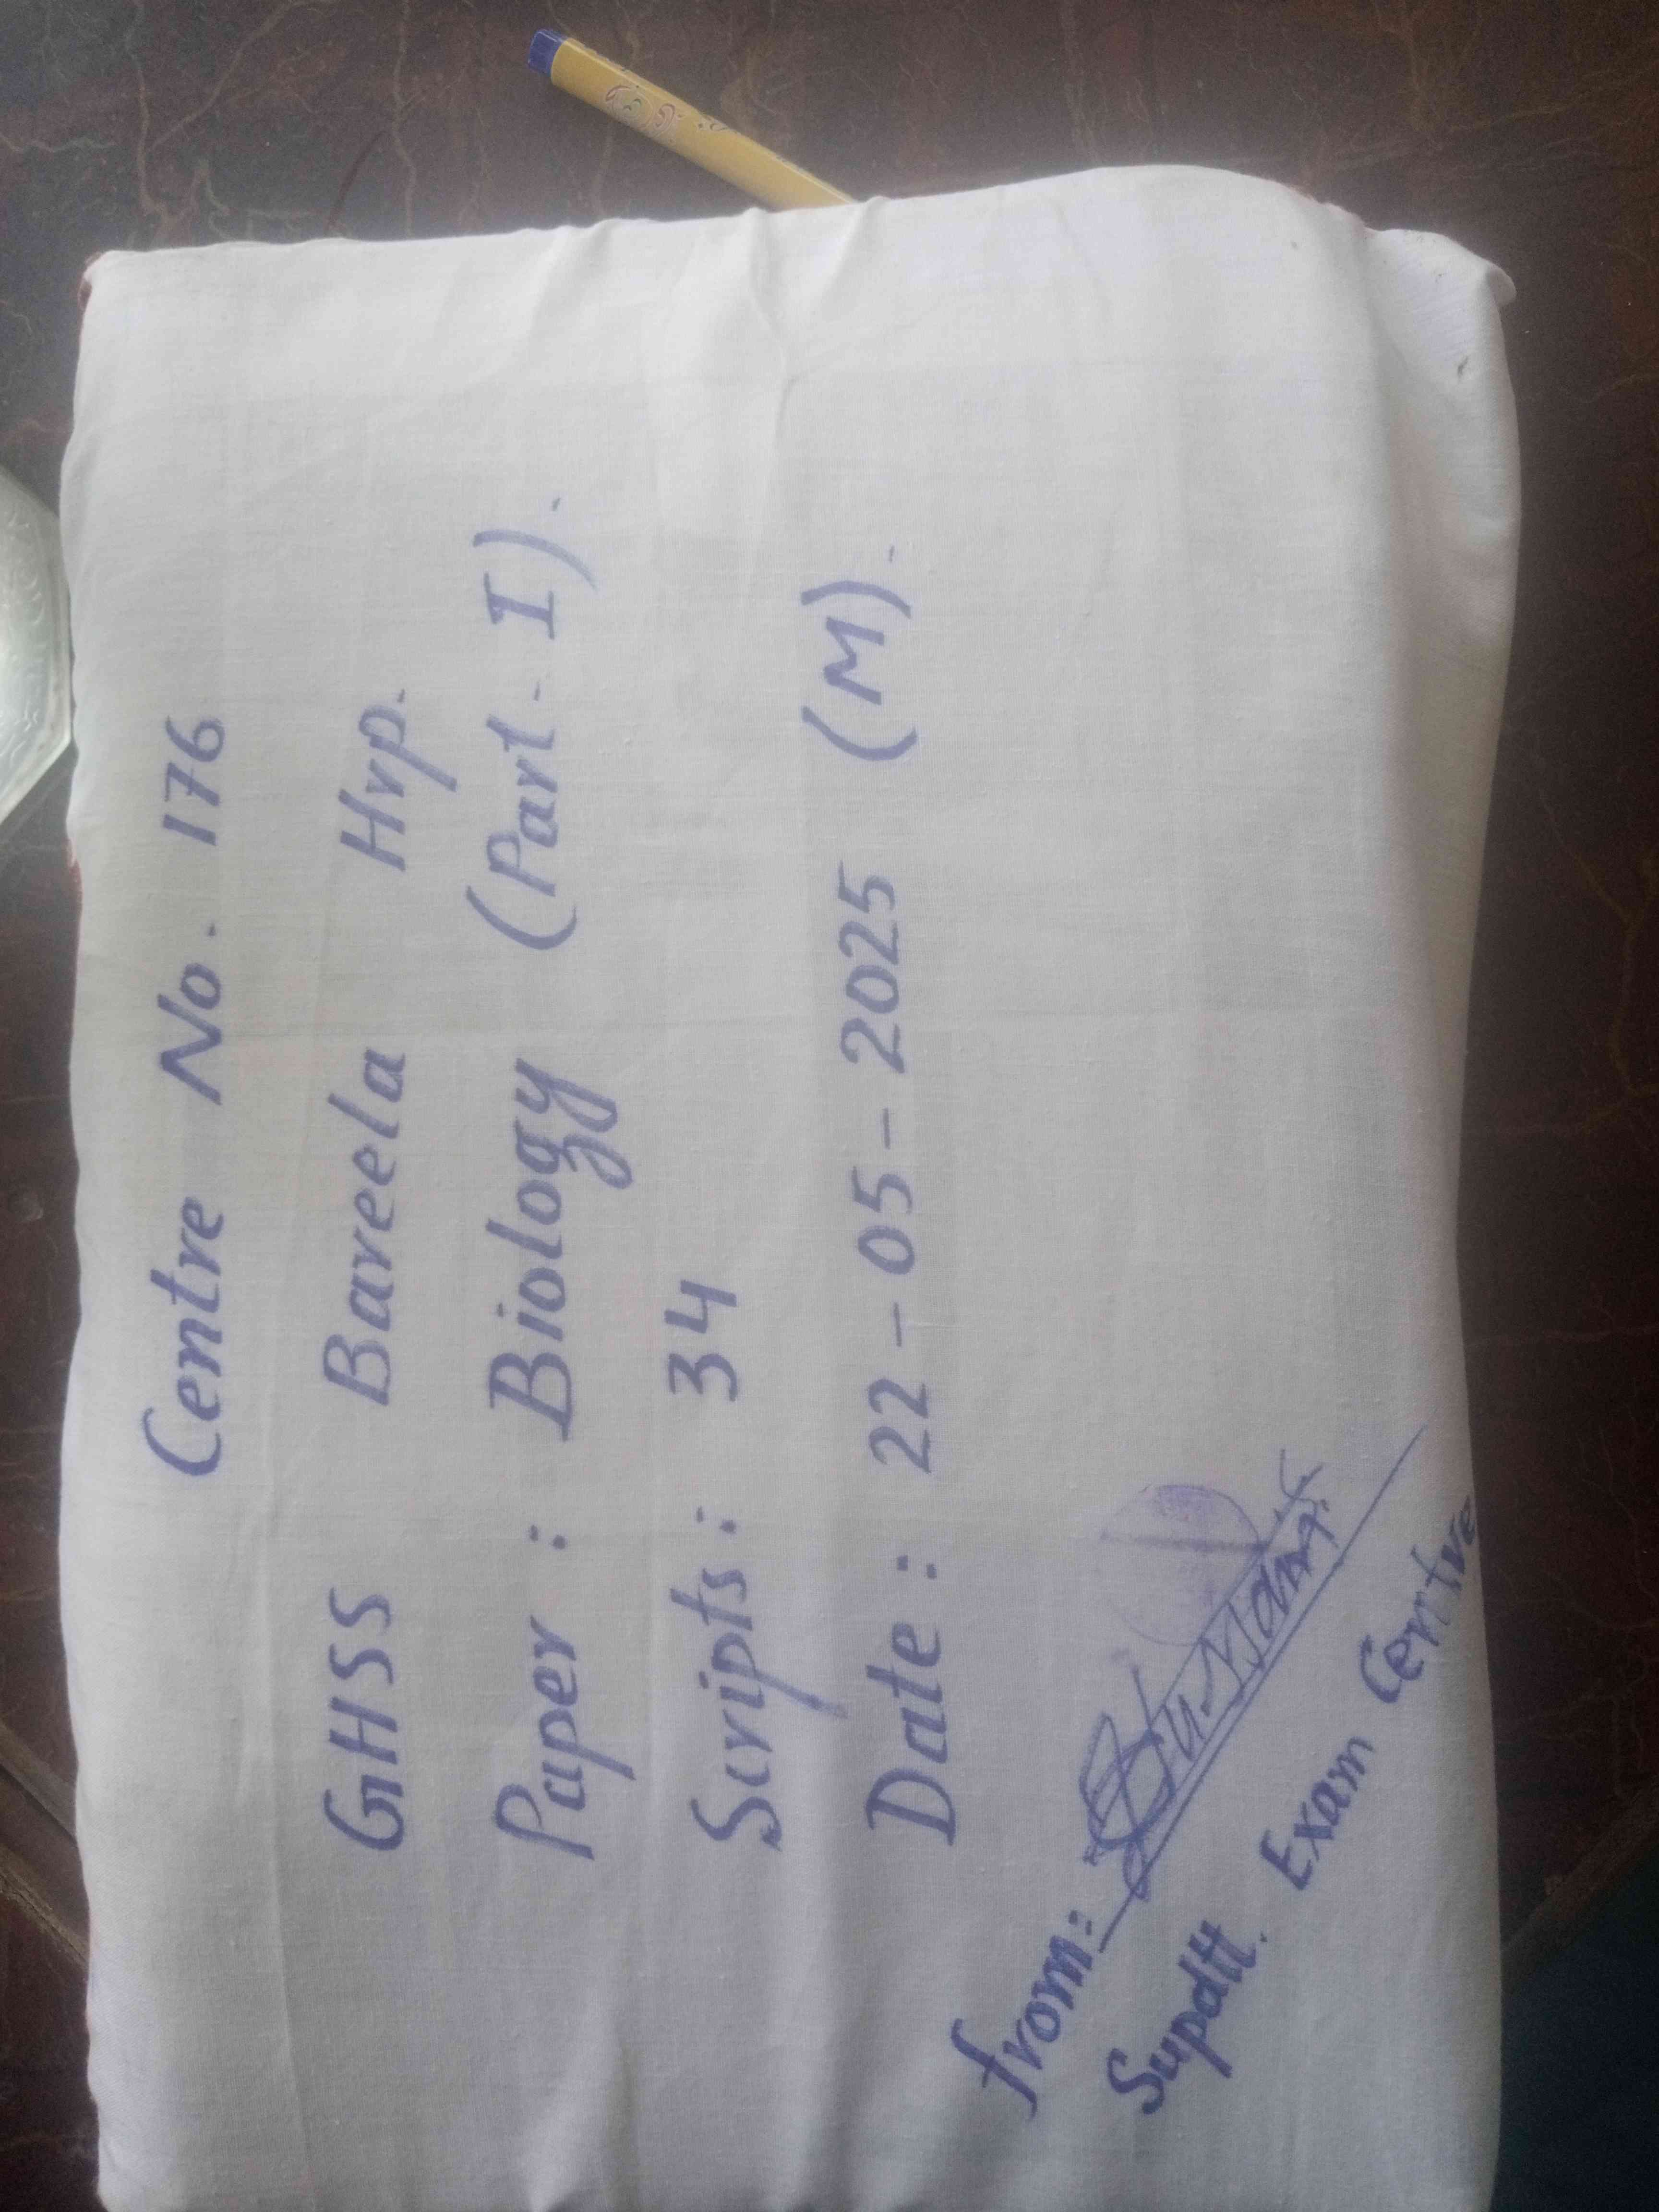 Centre No. 176
GHSS Bareela Hrp.
Paper : Biology (Part-I).
Scripts : 34
Date : 22-05-2025 (M).
from:
Supdtt. Exam Centre